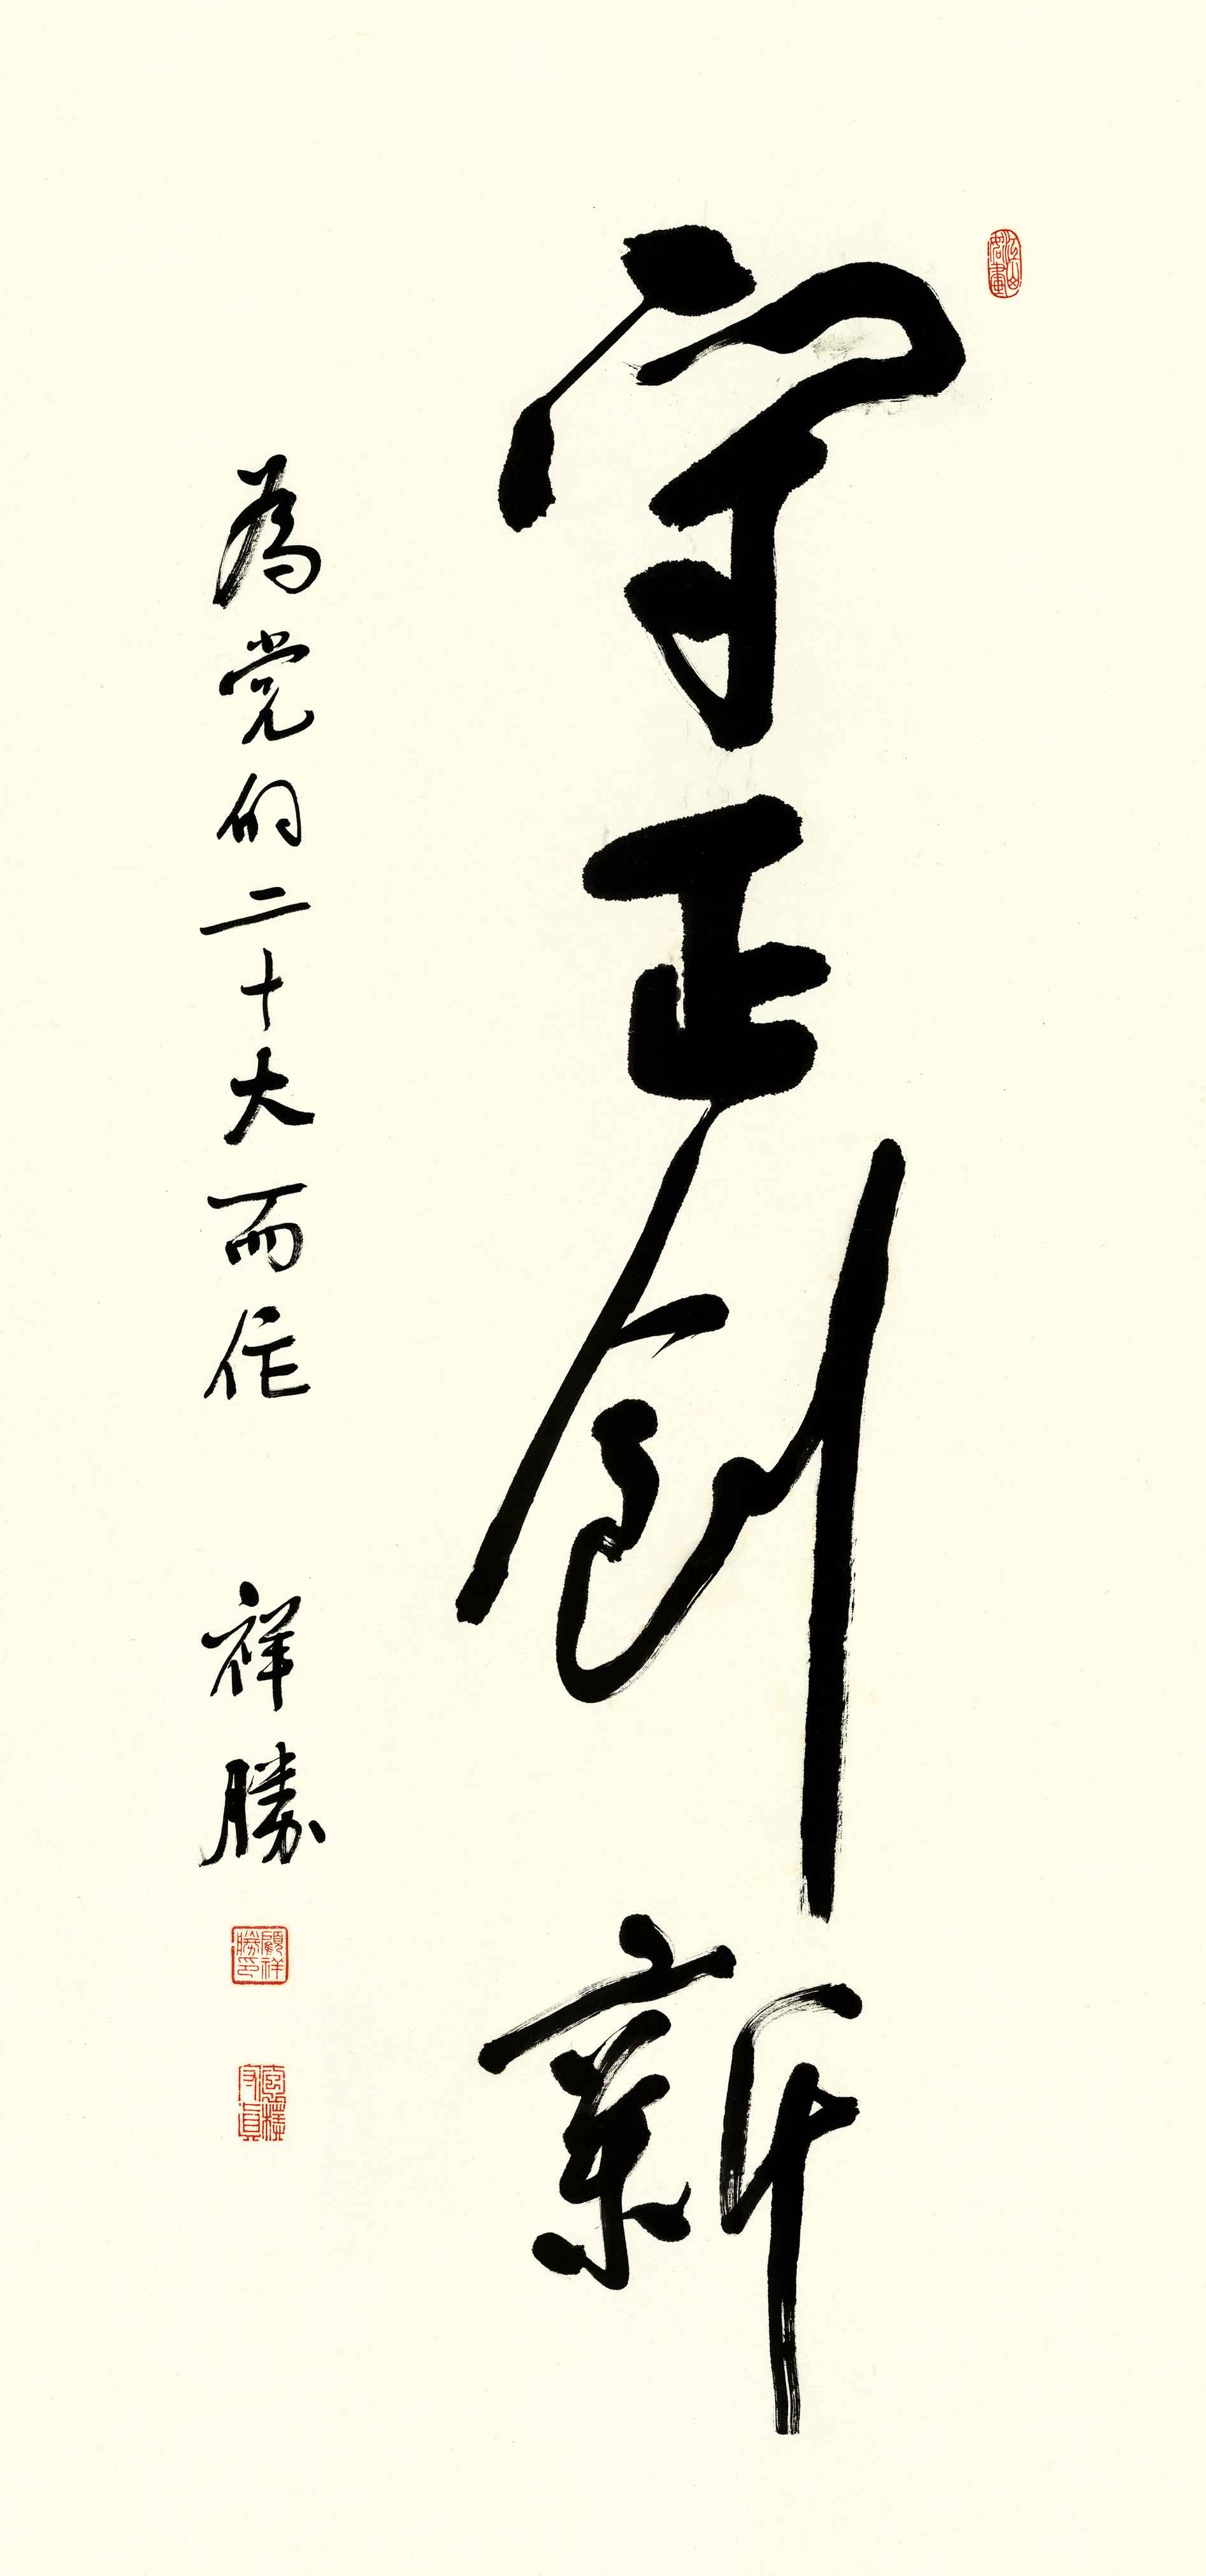 守正创新
為党的二十大而作
祥勝
顧祥勝印